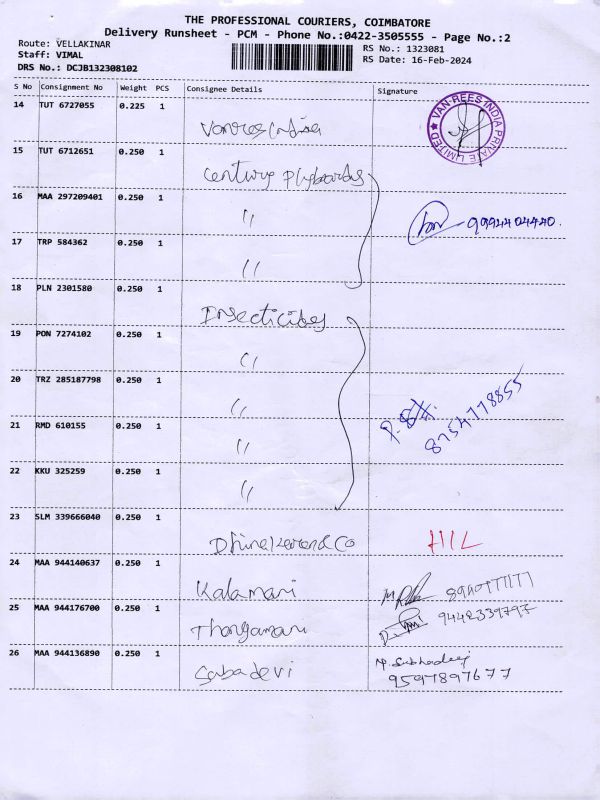 THE PROFESSIONAL COURIERS, COIMBATORE
Delivery Runsheet - PCM - Phone No.:0422-3505555 - Page No.:2
Route: VELLAKINAR
RS No.: 1323081
Staff: VIMAL
RS Date: 16-Feb-2024
DRS No.: DCJB132308102
S No Consignment No Weight PCS Consignee Details Signature
14 TUT 6727055 0.225 1 Vanrees India
VAN REES INDIA PRIVATE LIMITED
15 TUT 6712651 0.250 1 Century Plyboards
16 MAA 297209401 0.250 1 " 9994404440.
17 TRP 584362 0.250 1 "
18 PLN 2301580 0.250 1 Insecticides
19 PON 7274102 0.250 1 "
20 TRZ 285187798 0.250 1 "
8754778855
21 RMD 610155 0.250 1 "
22 KKU 325259 0.250 1 "
23 SLM 339666040 0.250 1 Dhinakaran d Co HIL
24 MAA 944140637 0.250 1 Kalamani
25 MAA 944176700 0.250 1 Thangamani 9442339797
26 MAA 944136890 0.250 1 Sabadevi
9597897677